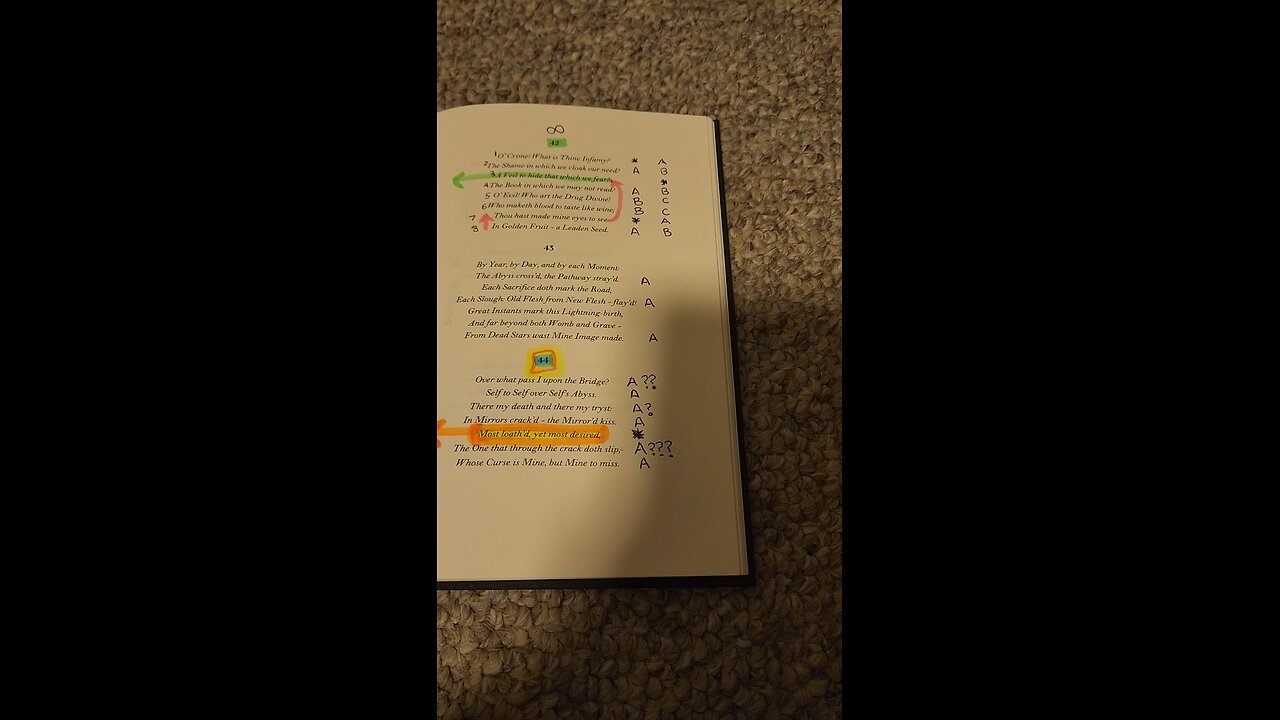 ∞
42
1 O' Crime! What is Thine Infamy? * A
2 The Shame in which we cloak our need? A B
3 A Veil to hide that which we fear? *
4 The Book in which we may not read? A B
5 O' Evil! Who art the Drug Divine! B C
6 Who maketh blood to taste like wine; B C
7 Thou hast made mine eyes to see * A
8 In Golden Fruit - a Leaden Seed. A B
43
By Year, by Day, and by each Moment:
The Abyss cross'd, the Pathway stray'd. A
Each Sacrifice doth mark the Road;
Each Slough: Old Flesh from New Flesh - flay'd! A
Great Instants mark this Lightning-birth,
And far beyond both Womb and Grave -
From Dead Stars wast Mine Image made. A
44
Over what pass I upon the Bridge? A ??
Self to Self over Self's Abyss. A
There my death and there my tryst: A?
In Mirrors crack'd - the Mirror'd kiss. A
Most loath'd, yet most desired, *
The One that through the crack doth slip,- A???
Whose Curse is Mine, but Mine to miss. A